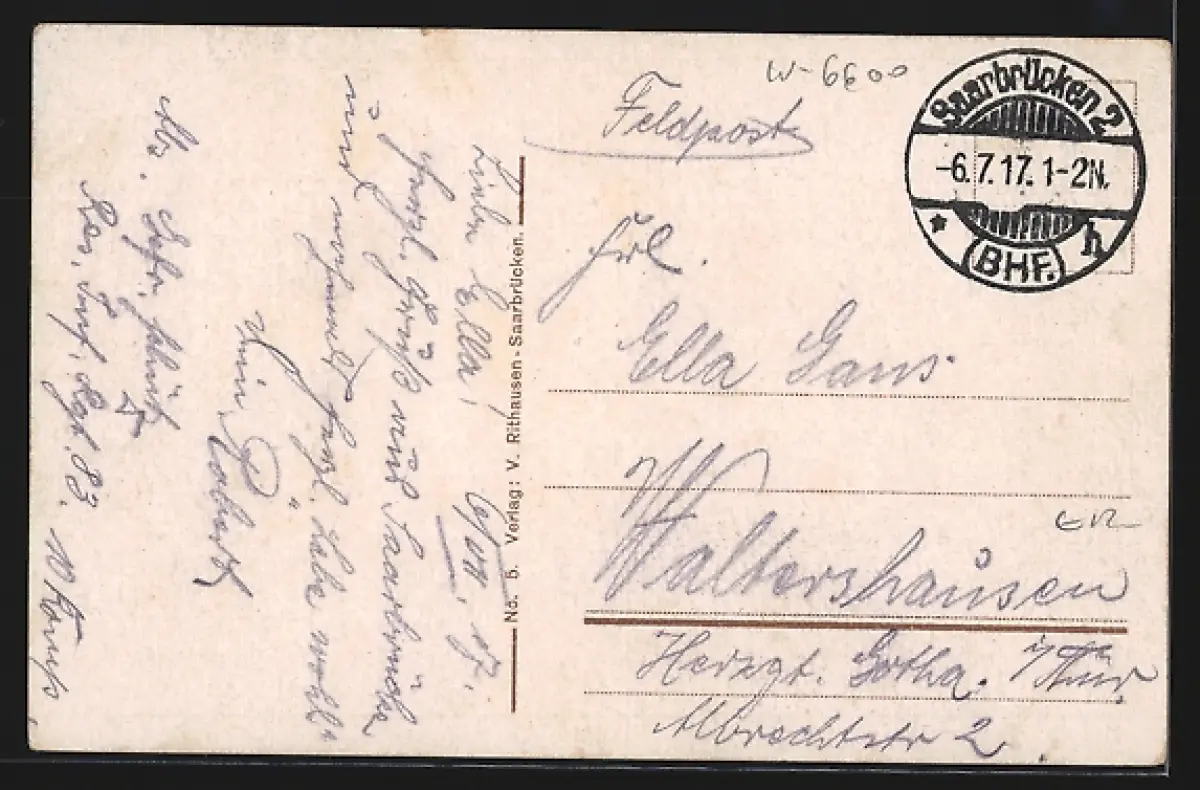 W-6600
Feldpost
Saarbrücken 2
-6.7.17. 1-2N.
* (BHF.) h
Frl.
Ella Gans
Waltershausen
Herzgt. Gotha. i/Thür.
Albrechtstr 2.
No. 5. Verlag: V. Rithausen-Saarbrücken.
6/VII. 17.
Liebe Ella!
Herzl. Grüße aus Saarbrücken
und nochmals herzl. Lebe wohl
Dein Robert
Abs. Gefr.
Res. Inf. Regt. 83. 10 Komp.